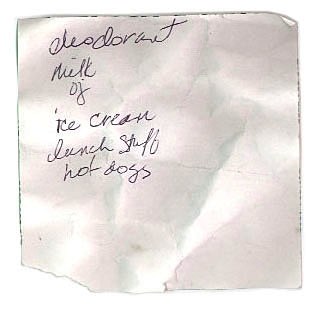 deodorant
milk
oj
ice cream
lunch stuff
hot dogs